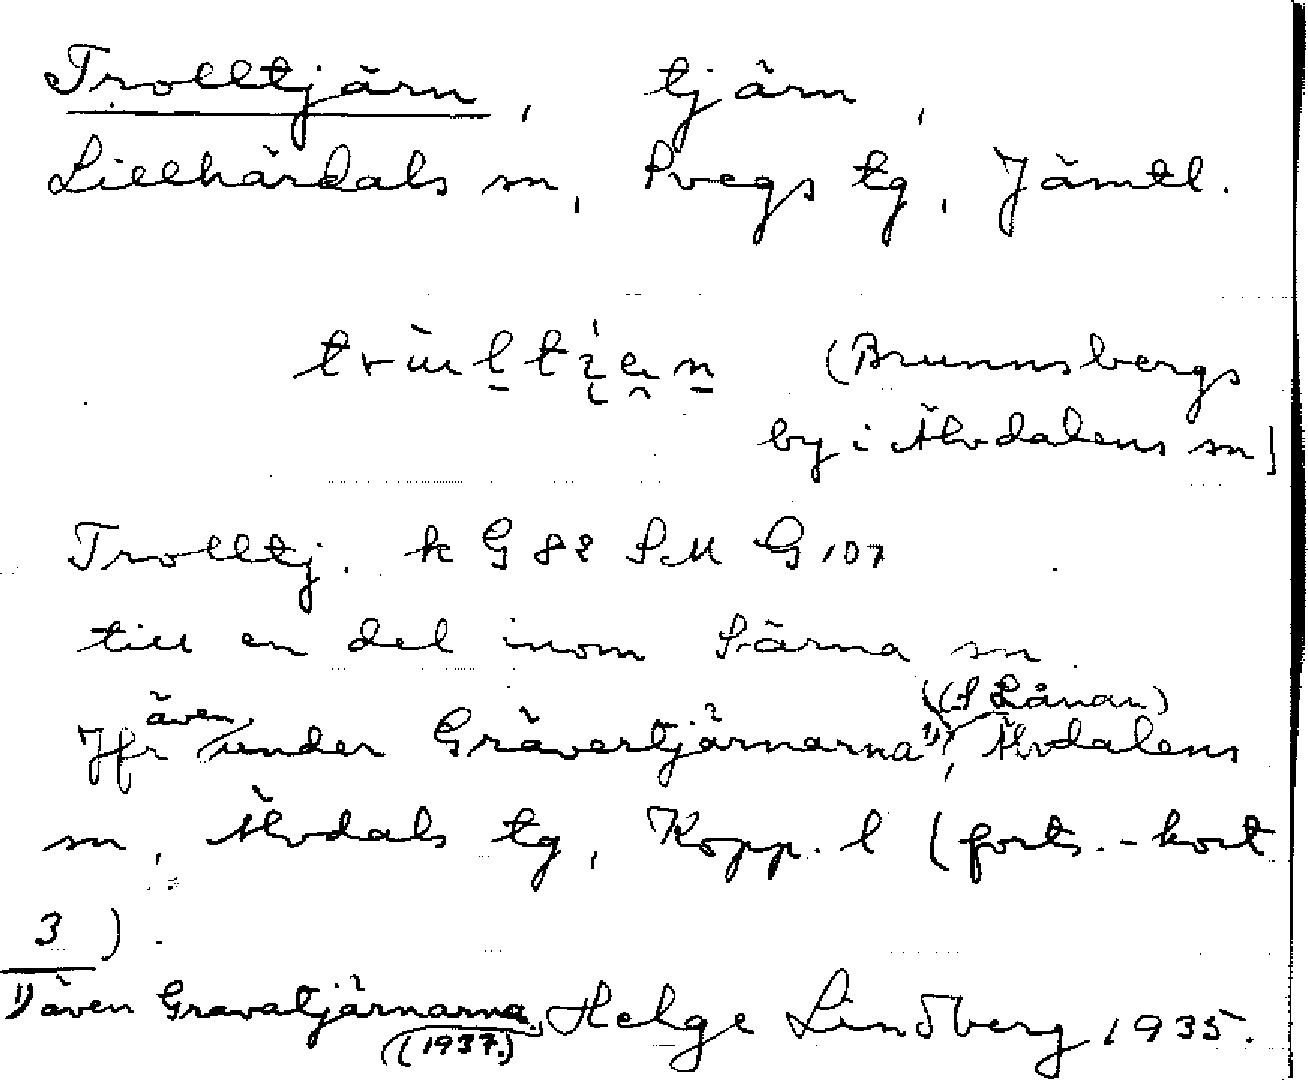 Trolltjärn, tjärn,
Lillhärdals sn, Svegs tg, Jämtl.
(Brunnsbergs
by i Älvdalens sn)
Trolltj. k G 82 SM G 107
till en del inom Särna sn.
(S Lånan)
Jfr även under Grävertjärnarna 1), Älvdalens
sn, Älvdals tg, Kopp. l (forts.-kort
3).
1) även Gravatjärnarna, Helge Lindberg 1935.
(1937.)